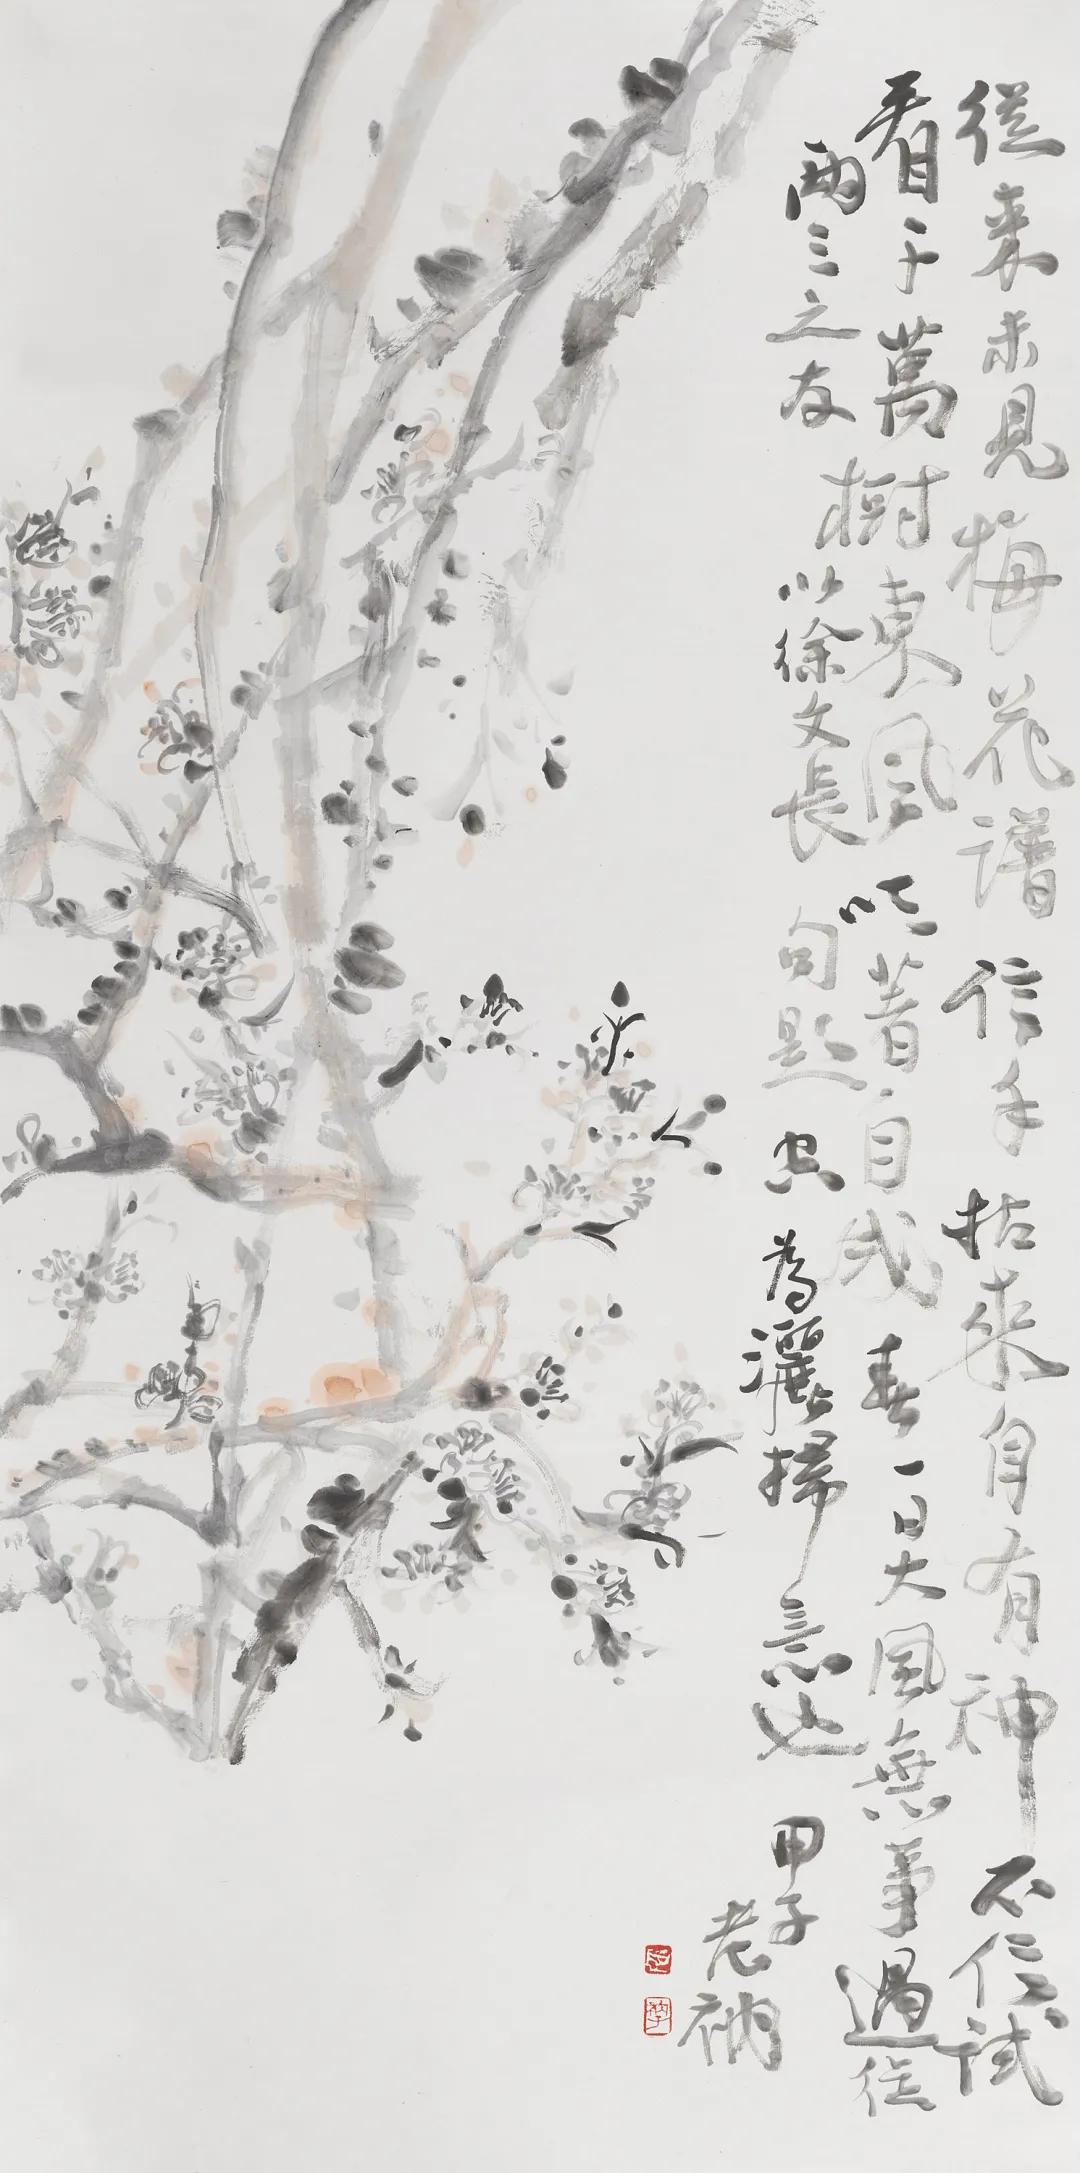 從来未見梅花譜信手拈來自有神不信試
看千萬樹東風吹著自成春一日大風無事過從
兩三之友以徐文長句題而為灑掃意也
甲子
老衲